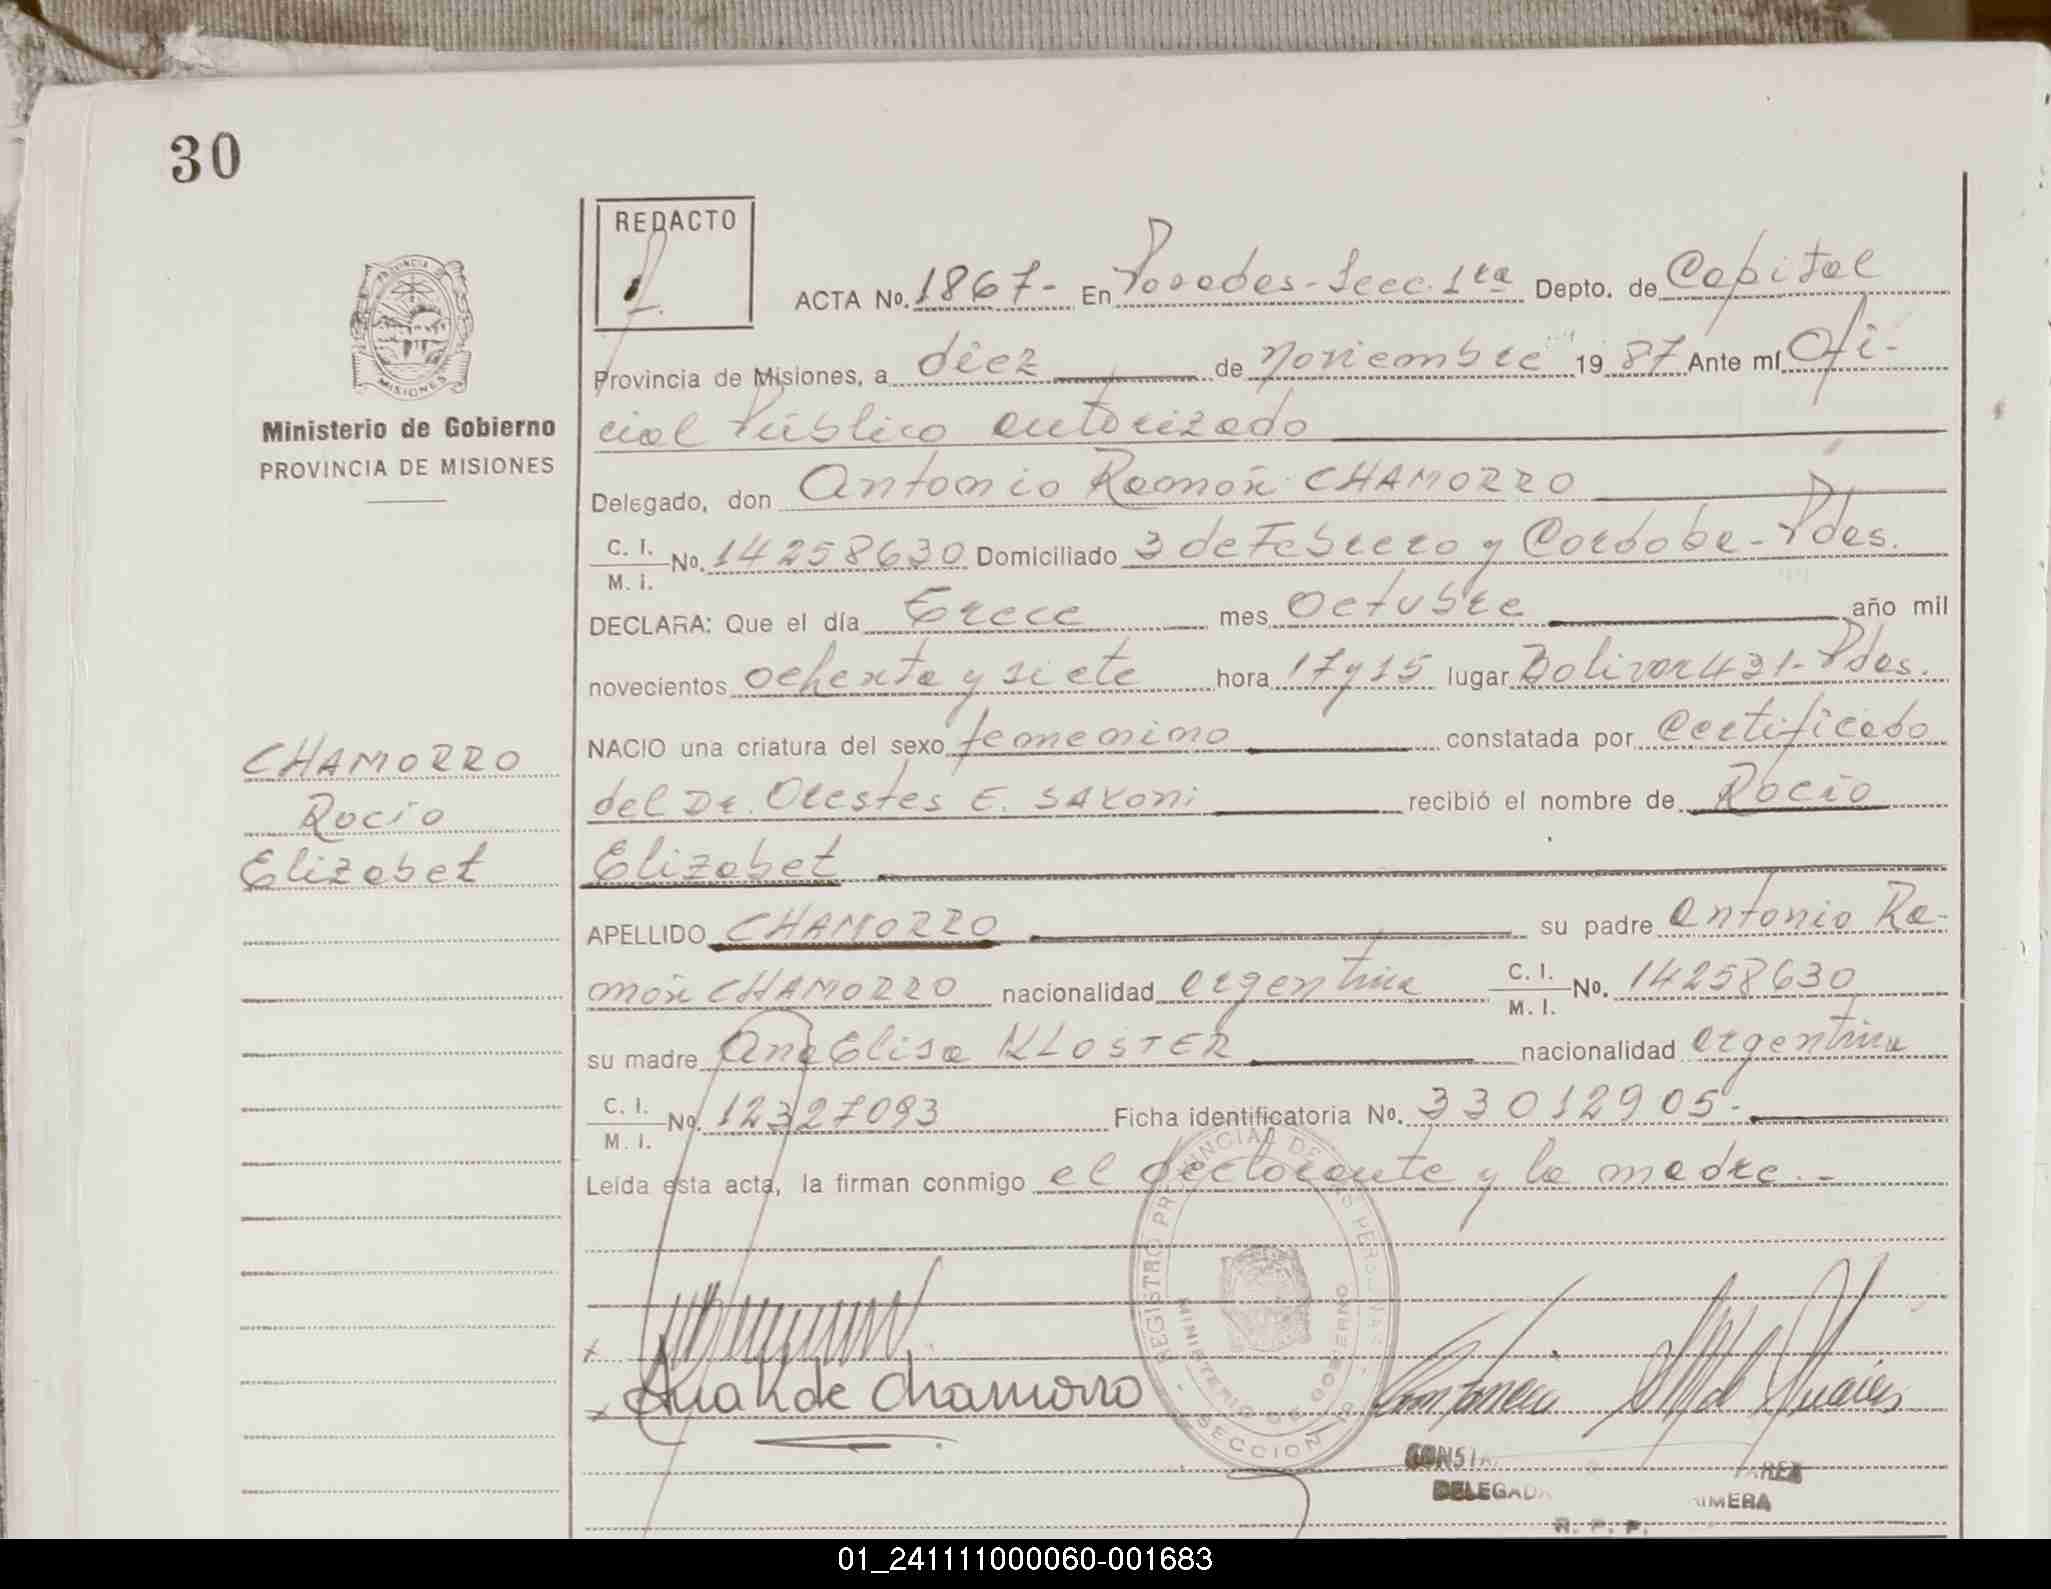 30
REDACTO
ACTA No. 1867- En Posadas-Secc. 1ra Depto. de Capital
Provincia de Misiones, a diez de noviembre 1987 Ante mí Ofi-
cial Público autorizado
Ministerio de Gobierno
PROVINCIA DE MISIONES
Delegado, don Antonio Ramón CHAMORRO
C. I.
M. I. No. 14258630 Domiciliado 3 de Febrero y Cordoba - Pdas.
DECLARA: Que el día Trece mes Octubre año mil
novecientos ochenta y siete hora 17 y 15 lugar Bolivar 431- Pdas.
NACIO una criatura del sexo femenino constatada por Certificado
del Dr. Orestes E. SAXONI recibió el nombre de Rocío
Elizabet
CHAMORRO
Rocío
Elizabet
APELLIDO CHAMORRO su padre Antonio Ra-
món CHAMORRO nacionalidad argentina C. I.
M. I. No. 14258630
su madre Ana Elisa KLOSTER nacionalidad argentina
C. I.
M. I. No. 12327093 Ficha identificatoria No. 33012905-
Leída esta acta, la firman conmigo el declarante y la madre.-
REGISTRO PROVINCIAL DE LAS PERSONAS
MINISTERIO DE GOBIERNO
SECCION
Ana K de Chamorro
DELEGADA
R. P. P.
01_241111000060-001683